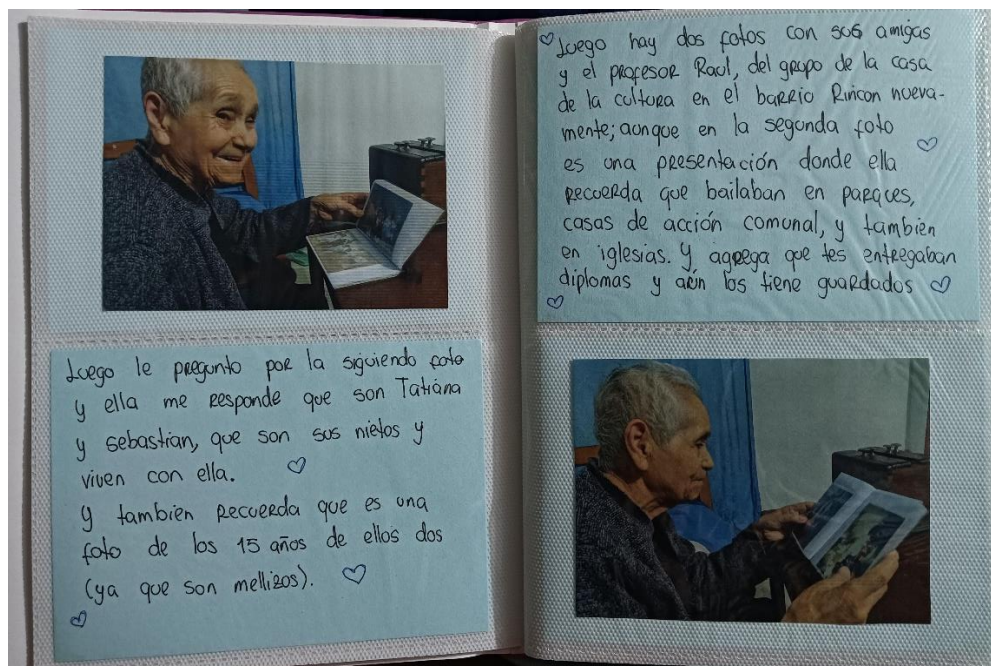 Luego le pregunto por la siguiendo foto
y ella me responde que son Tatiana
y sebastian, que son sus nietos y
viven con ella.
y también recuerda que es una
foto de los 15 años de ellos dos
(ya que son mellizos).
Luego hay dos fotos con sus amigas
y el profesor Raul, del grupo de la casa
de la cultura en el barrio Rincon nueva-
mente; aunque en la segunda foto
es una presentación donde ella
recuerda que bailaban en parques,
casas de acción comunal, y también
en iglesias. Y agrega que les entregaban
diplomas y aún los tiene guardados